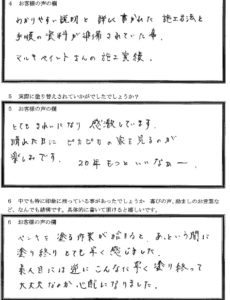 4 お客様の声の欄
わかりやすい説明と 詳しく書かれた 施工方法と
手順の資料が準備されていた事。
マルキペイントさんの施工実績。
5 実際に塗り替えされていかがでしたでしょうか?
5 お客様の声の欄
とてもきれいになり 感激しています。
晴れた日に ピカピカの家を見るのが
楽しみです。
20年もつといいなぁー
6 中でも特に印象に残っている事があったでしょうか 喜びの声、励ましのお言葉な
ど、なんでも結構です。具体的に書いて頂けると嬉しいです。
6 お客様の声の欄
ペンキを塗る作業が始まると、あっという間に
塗り終り とても早く感じました。
素人目には逆に こんなに早く塗り終って
大丈夫なのか心配になりました。